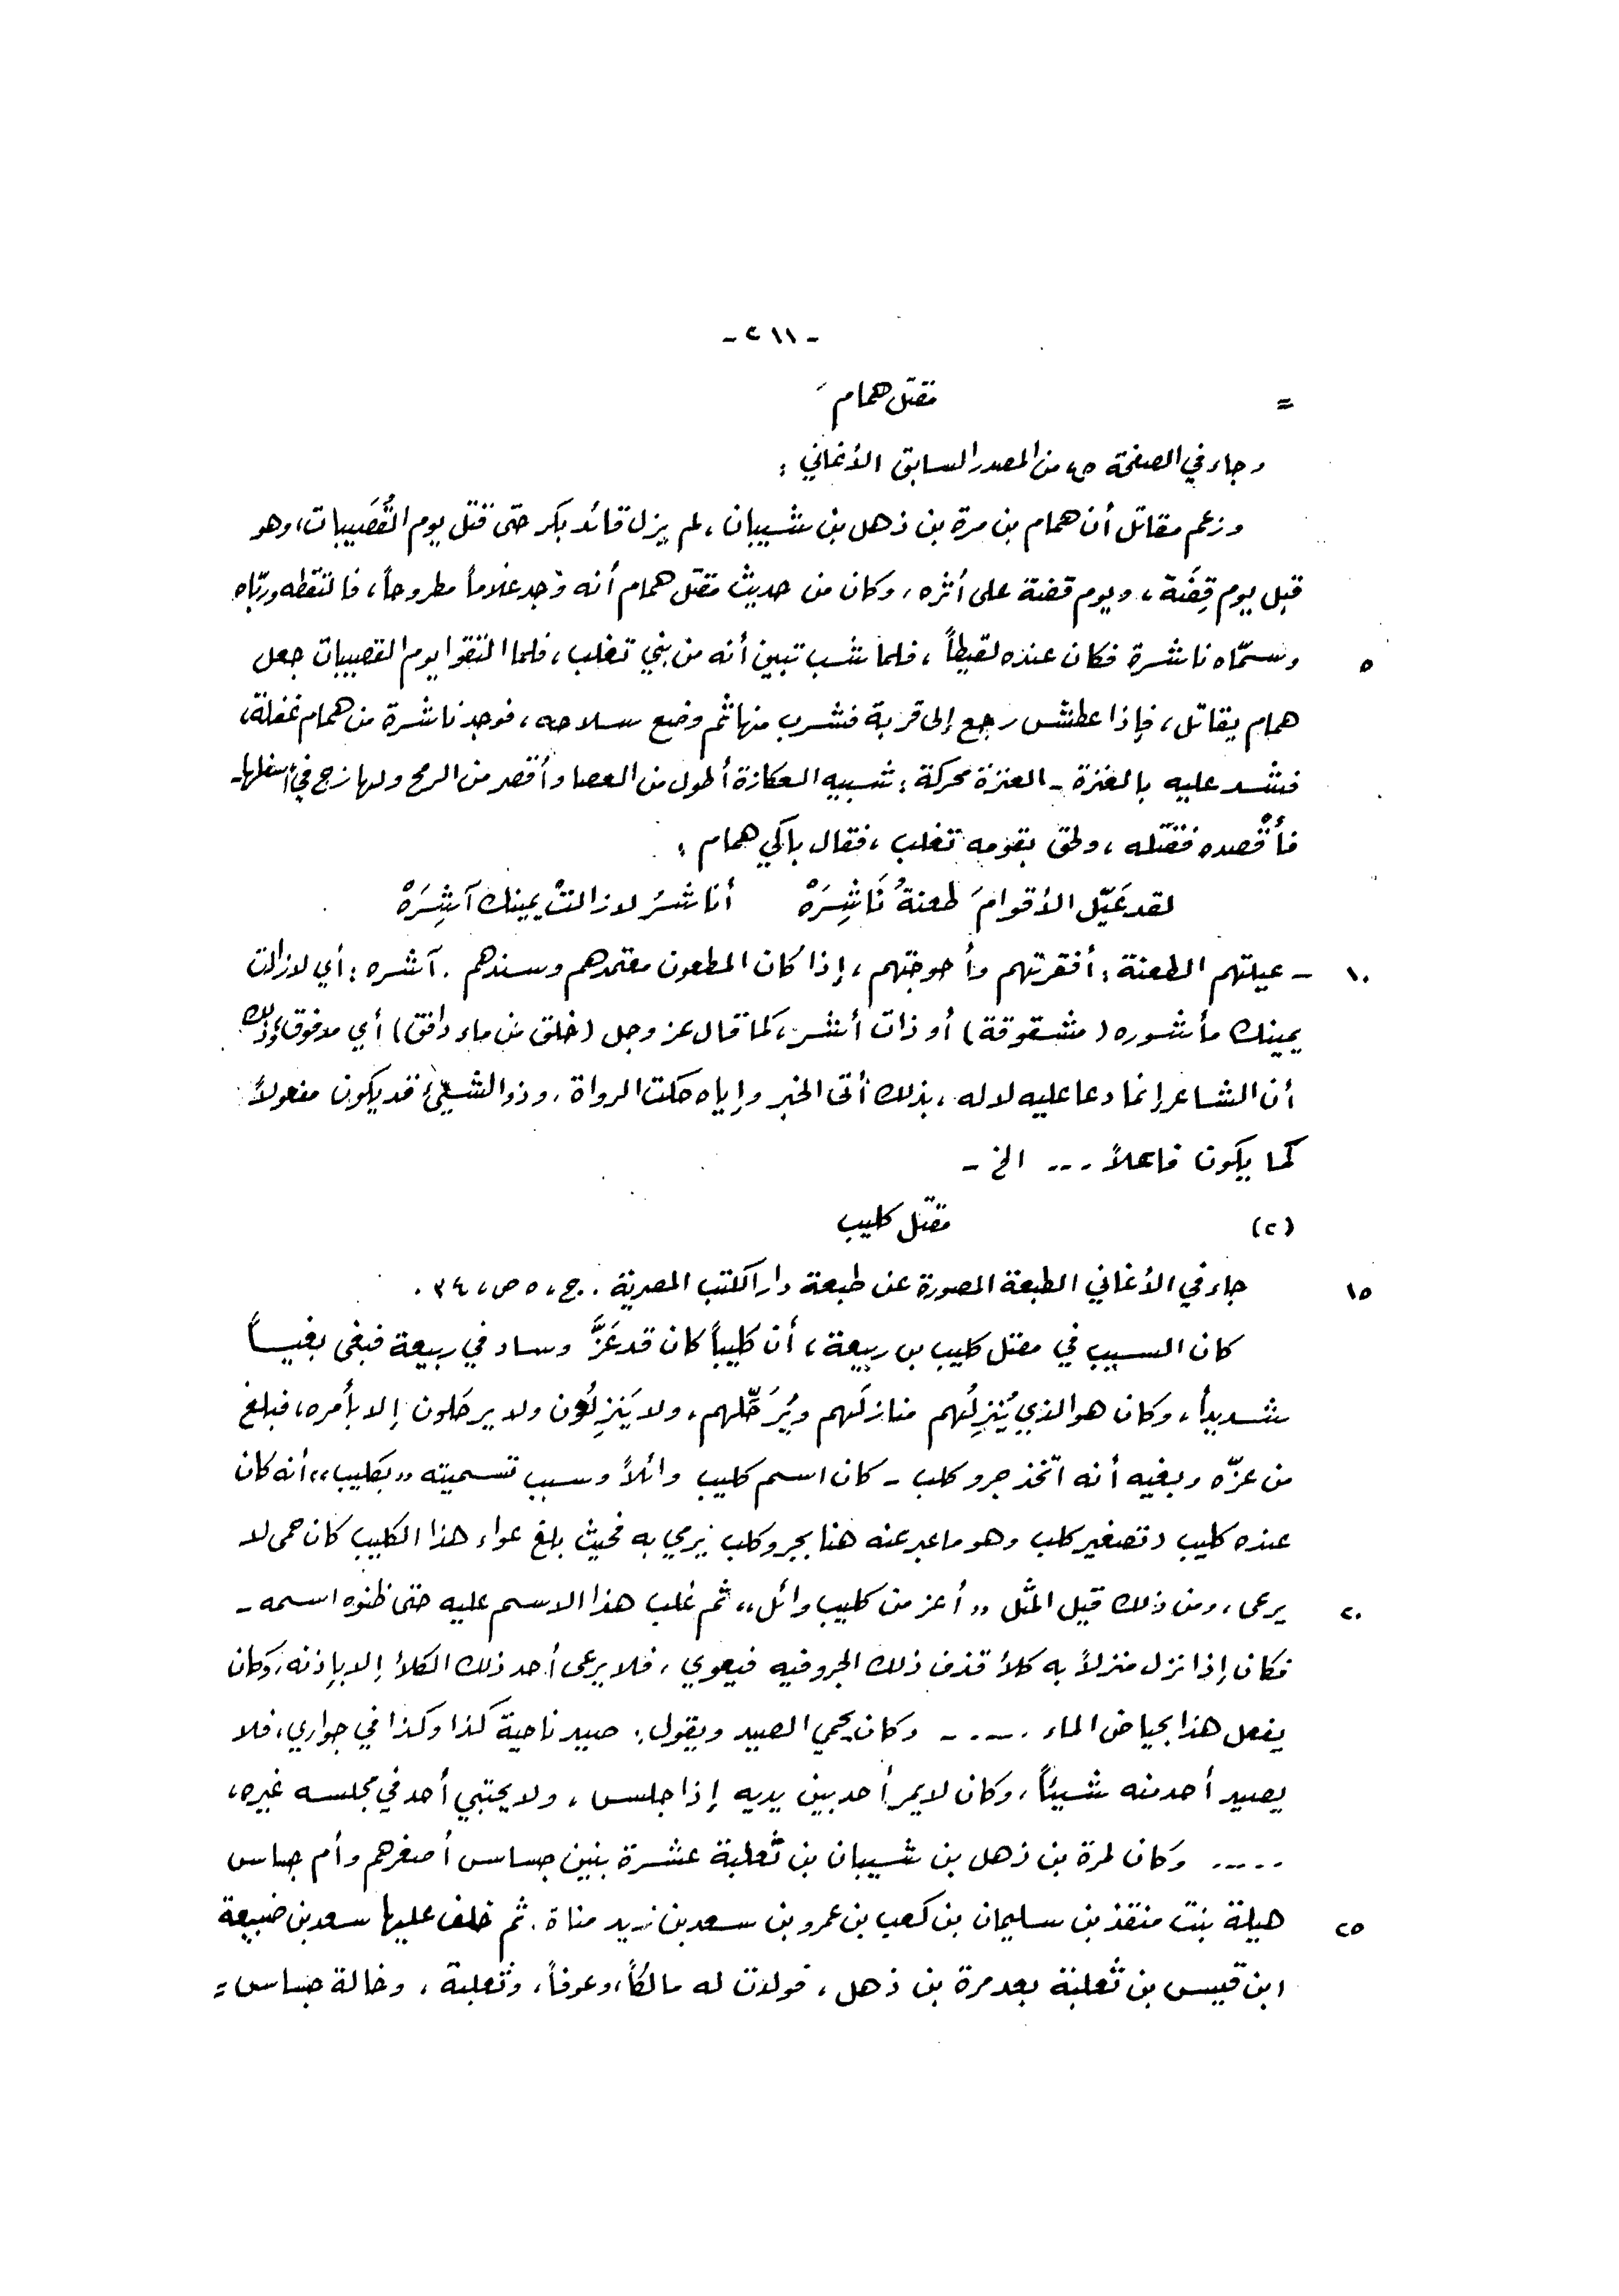 - ٢١١ -
= مقتل همام
وجاء في الصفحة من المصدر السابق الأغاني :
وزعم مقاتل أن همام بن مرة بن ذهل بن شيبان ، لم يزل قائد بكر حتى قتل يوم القُصَيبات ، وهو
قبل يوم قِضَة ، ويوم قضة على أثره ، وكان من حديث مقتل همام أنه وجد غلاماً مطروحاً ، فالتقطه وربّاه
٥ وسمّاه ناشرة فكان عنده لقيطاً ، فلما شب تبين أنه من بني تغلب ، فلما التقوا يوم القصيبات جعل
همام يقاتل ، فإذا عطش رجع إلى قربة فشرب منها ثم وضع سلاحه ، فوجد ناشرة من همام غفلة ،
فشد عليه بالعنزة - العنزة محركة : شبيه العكازة أطول من العصا وأقصر من الرمح ولها زج في أسفلها -
فأقصده فقتله ، ولحق بقومه تغلب ، فقال باكي همام :
لقد عَيّل الأقوامَ طعنةُ نَاشِرَهْ أنا شرُ لا زالتْ يمينك آشِرَهْ
١٠ - عيلتهم الطعنة : أفقرتهم وأحوجتهم ، إذا كان المطعون معتمدهم وسندهم . آشره : أي لازالت
يمينك مأشوره ( مشقوقة ) أو ذات أشر ، كما قال عز وجل ( خلق من ماء دافق ) أي مدفوق ، وذلك
أن الشاعر إنما دعا عليه لا له ، بذلك أتى الخبر وإياه حكت الرواة ، وذو الشيئ قد يكون مفعولاً
كما يكون فاعلاً ... الخ -
(٢) مقتل كليب
١٥ جاء في الأغاني الطبعة المصورة عن طبعة دار الكتب المصرية . ج ، ٥ ص ، ٣٤ .
كان السبب في مقتل كليب بن ربيعة ، أن كليباً كان قد عَزَّ وساد في ربيعة فبغى بغيـاً
شديداً ، وكان هو الذي يُنِزلُهم منازلَهم ويُرَحّلهم ، ولا يَنزِلُون ولا يرحَلون إلا بأمره ، فبلغ
من عزّه وبغيه أنه اتخذ جرو كلب - كان اسم كليب وائلاً وسبب تسميته ،، بكليب ،، أنه كان
عنده كليب ( تصغير كلب وهو ما عبر عنه هنا بجرو كلب يرمي به فحيث بلغ عواء هذا الكليب كان حمى لا
٢٠ يرعى ، ومن ذلك قيل المثل ،، أعز من كليب وائل ،، ثم غلب هذا الاسم عليه حتى ظنوه اسمه -
فكان إذا نزل منزلاً به كلأ قذف ذلك الجرو فيه فيعوي ، فلا يرعى أحد ذلك الكلأ إلا بإذنه ، وكان
يفعل هذا بحياض الماء ..... وكان يحمي الصيد ويقول : صيد ناحية كذا وكذا في جواري ، فلا
يصيد أحد منه شيئاً ، وكان لا يمر أحد بين يديه إذا جلس ، ولا يحتبي أحد في مجلسه غيره ،
..... وكان لمرة بن ذهل بن شيبان بن ثعلبة عشرة بنين جساس أصغرهم وأم جساس
٢٥ هيلة بنت منقذ بن سليمان بن كعب بن عمرو بن سعد بن زيد مناة . ثم خلف عليها سعد بن ضبيعة
ابن قيس بن ثعلبة بعد مرة بن ذهل ، فولدت له مالكاً ، وعوفاً ، وثعلبة ، وخالة جساس =